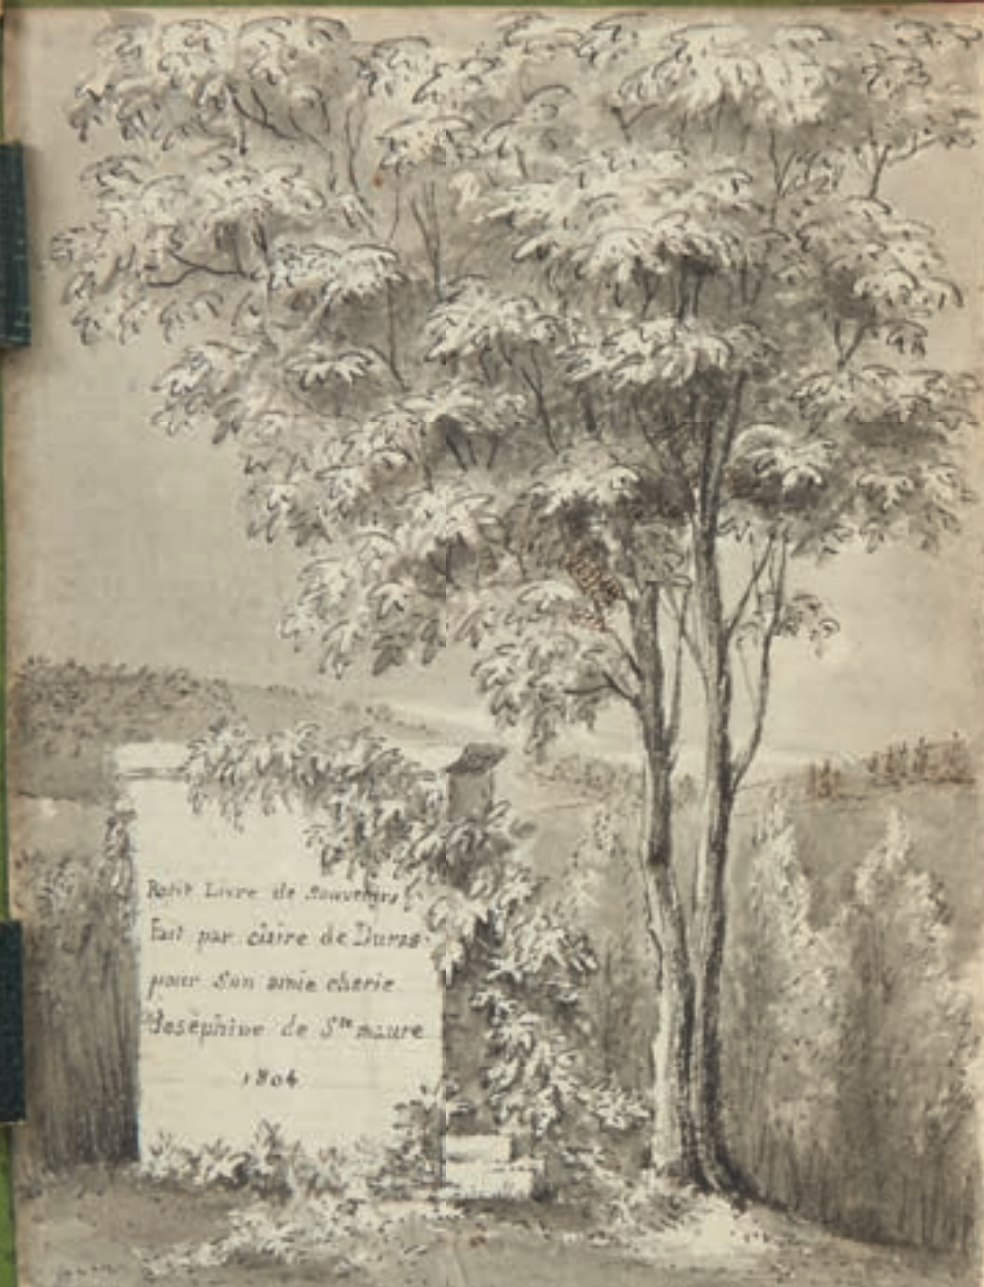 Petit Livre de Souvenirs
Fait par claire de Duras
pour Son amie cherie
Joséphine de S^te maure
1804